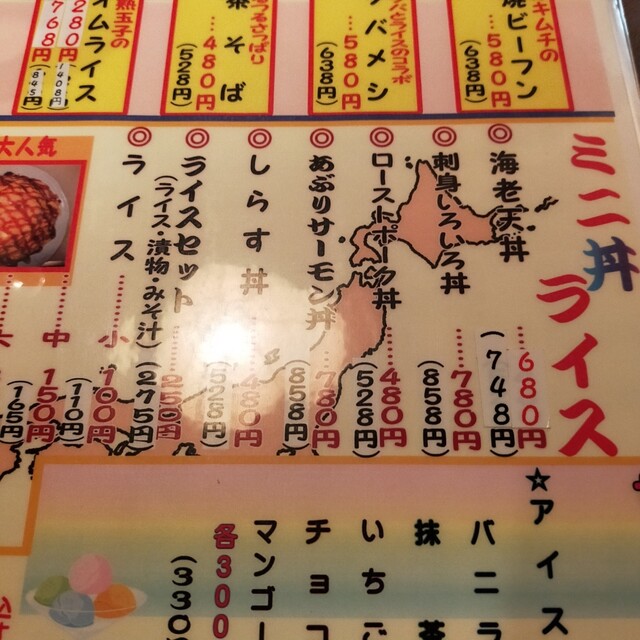 キムチの
焼ビーフン
580円
(638円)
バとライスのコラボ
バメシ
580円
(638円)
つるさっぱり
茶そば
480円
(528円)
熟玉子の
オムライス
1280円
1408円)
768円
(845円)
ミニ丼
ライス
◎海老天丼
680円
(748円)
◎刺身いろいろ丼
780円
(858円)
◎ローストポーク丼
480円
(528円)
◎あぶりサーモン丼
780円
(858円)
◎しらす丼
480円
(528円)
◎ライスセット
(ライス・漬物・みそ汁)
250円
(275円)
◎ライス
小
100円
(110円)
中
150円
(165円)
大人気
☆アイス
バニラ
抹茶
いちご
チョコ
マンゴー
各300
(330